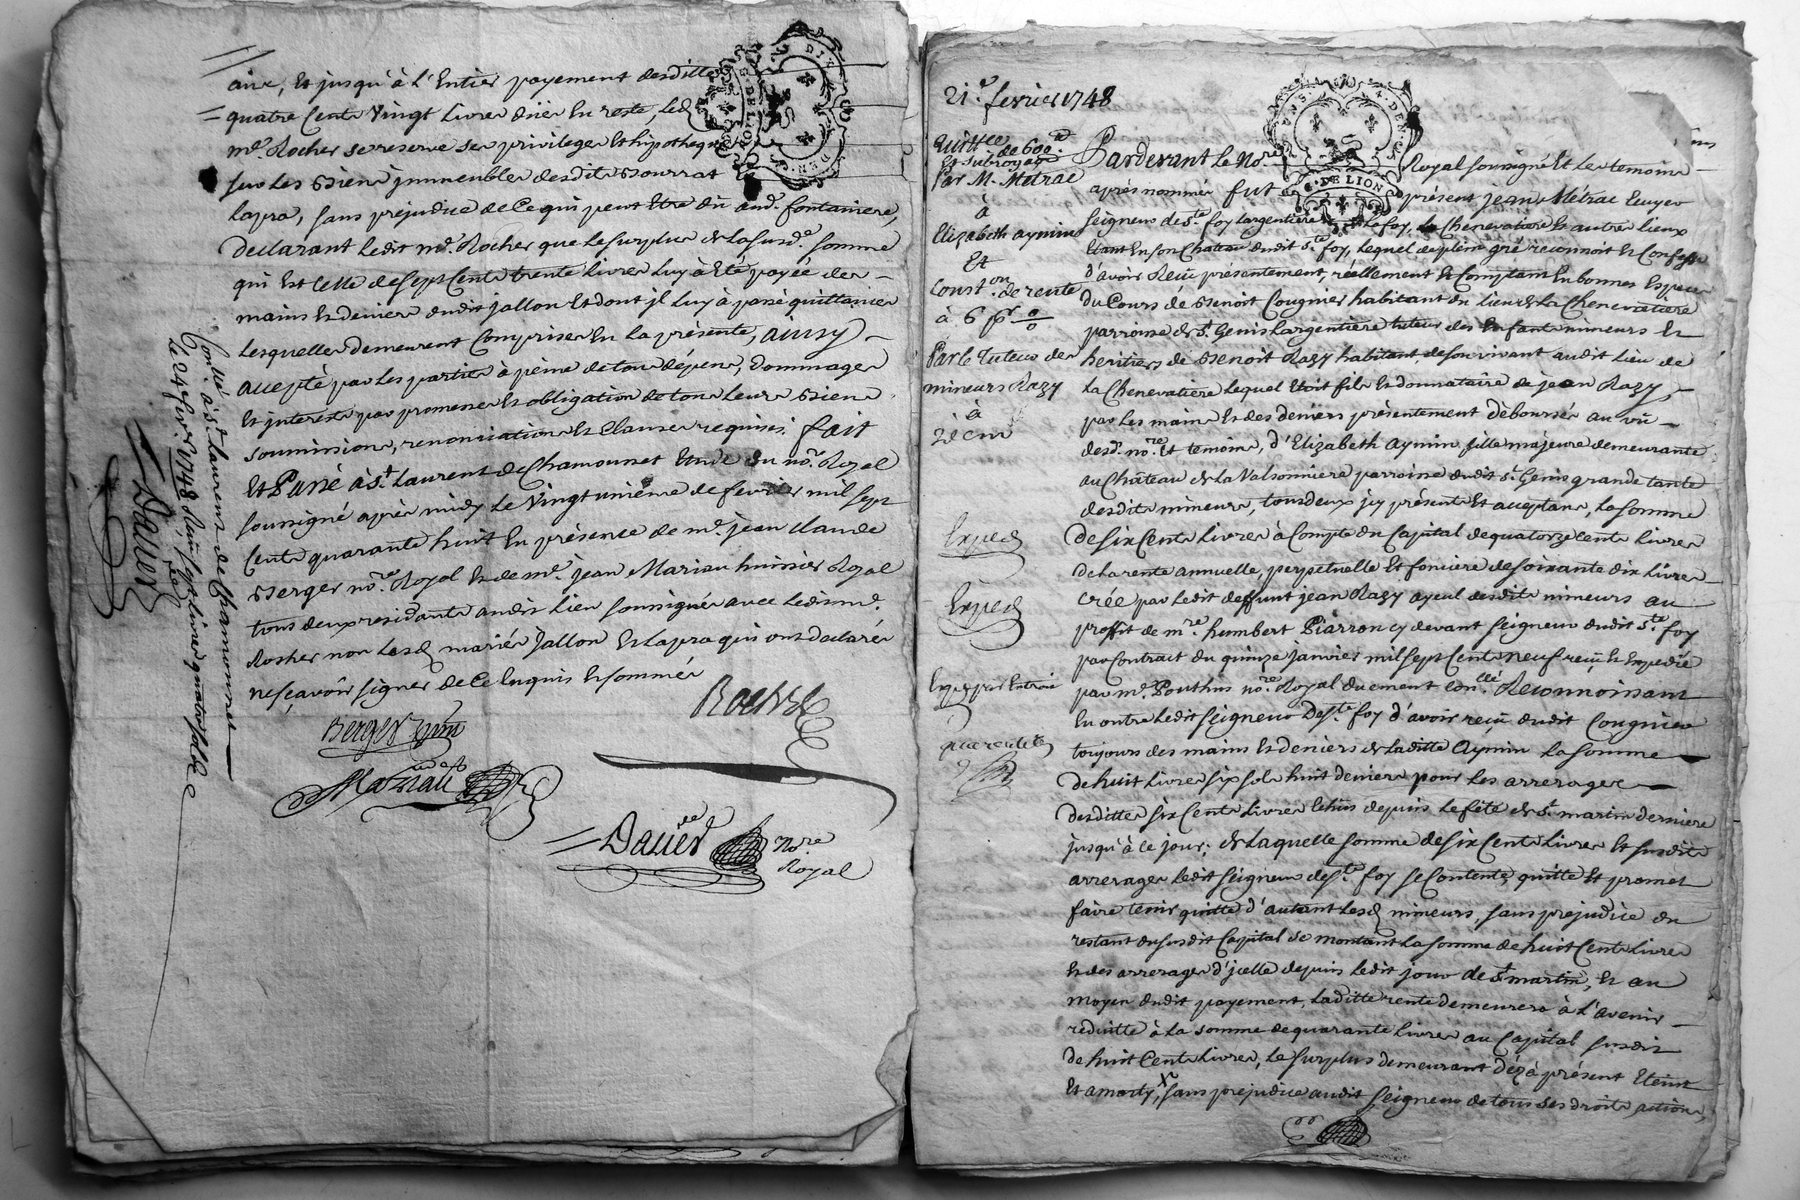 aux, Et jusqu'à l'Entier payement desdittes
quatre Cents Vingt livres düe En reste, led
mr. Rocher se reserve ses privileges Et hipotheques
sur Les Biens immeubles desdits Bourrat
Lapra, sans préjudice de Ce qui peut Etre dû aud. fontaniere,
declarant ledit mr. Rocher que Le surplus de La susd.e somme
qui Est Celle de sept Cents trente livres Luy à Eté payée des
mains Et deniers dudit Jallon Et dont il Luy à passé quittances
Lesquelles demeurent Comprises En La présente, ainsy
accepté par Les parties à peine de tous dépens, Dommages
Et interests par promesses Et obligation de tous Leurs Biens
soumissions, renonciations Et Clauses requises. fait
Et Passé à St. Laurent de Chamousset Etude du no.re Royal
soussigné après midy Le Vingt unième de fevrier mil sept
Cents quarante huit En présence de mr. jean Claude
Berger no.re Royal Et de mr. jean Mariau huissier Royal
tous deux residants audit Lieu soussignés avec Ledit mr.
Rocher non Lesd mariés Jallon Et Lapra qui ont déclaré
ne sçavoir signer de Ce Enquis Et sommés
Rocher
Berger
Mariau
Daüer No.re
Royal
Con.llé à St. Laurent de Chamousset
Le 24 fevrier 1748 Reçu sept Livres quatre sols
Daüer
21.e fevrier 1748
Quitt.ce de 600.#
Et subrogaon
Par M. Metrae
à
Elizabeth aymin
Et
Const.on de rente
à 6 pr o/o
Par le Tuteur des
mineurs Razy
à
Exped
Exped
Pardevant Le No.re Royal soussigné Et Les temoins
après nommés fut présent jean Métrae Ecuyer
seigneur de Ste. foy Largentiere, Le fay, La Chenevatiere Et autres Lieux
Etant En son Chateau dudit Ste. foy, Lequel de plein gré reconnoit Et Confesse
d'avoir Reçu présentement, réellement Et Comptant En bonnes Especes
du Cours de Benoit Cougnier habitant du Lieu de La Chenevatiere
parroisse de St. Genis Largentiere tuteur des Enfants mineurs Et
heritiers de Benoit Razy habitant, de son vivant audit Lieu de
La Chenevatiere Lequel Etoit fils Et donnataire de jean Razy,
par Les mains Et des deniers présentement déboursés au vû
desd. no.re Et temoins, d'Elizabeth Aymin fille majeure demeurante
au Château de La Valsonniere parroisse dudit St. Genis grande tante
desdits mineurs, tous deux icy présents Et acceptans, La somme
de six Cents livres à Compte du Capital de quatorze Cents Livres
de La rente annuelle, perpetuelle Et fonciere de soixante dix Livres
crée par Ledit deffunt jean Razy ayeul desdits mineurs au
proffit de m.re humbert Piarron cy devant seigneur dudit Ste. foy
par Contrat du quinze janvier mil sept Cents neuf reçû Et Expedié
par mr. Pouthus no.re Royal duement Con.llé Reconnoissant
En outre Ledit seigneur De Ste. foy d'avoir reçû dudit Cougnier
toujours des mains Et deniers de Laditte Aymin La somme
de huit Livres six sols huit deniers pour Les arrerages
desdittes six Cents Livres Echus depuis La fête de St. martin derniere
jusqu'à ce jour; de Laquelle somme de six Cents Livres Et susdits
arrerages Ledit seigneur de Ste. foy se Contente, quitte Et promet
faire tenir quitte d'autant Lesd mineurs, sans prejudice du
restant du susdit Capital se montant La somme de huit Cents Livres
Et des arrerages d'icelle depuis Ledit jour de St. martin, Et au
moyen dudit payement, Laditte rente demeurera à L'avenir
réduitte à La somme de quarante Livres au Capital susdit
de huit Cents Livres, Le surplus demeurant dézà présent Eteint
Et amorty, sans prejudice audit seigneur de tous ses droits actions,